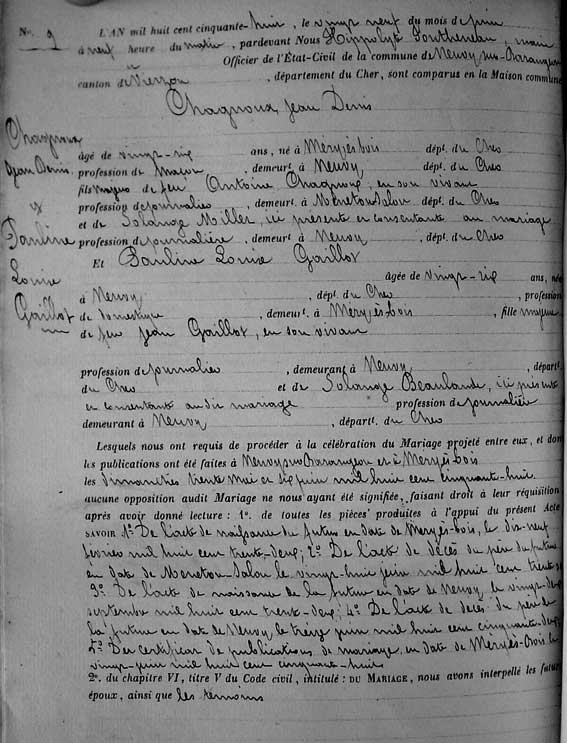 No. 9 L'AN mil huit cent cinquante-huit, le vingt neuf du mois de juin
à neuf heure du matin, pardevant Nous Hippolyte maire
Officier de l'État-Civil de la commune de Neuvy-sur-Barangeon
canton de Vierzon, département du Cher, sont comparus en la Maison commune
Chagnoux Jean Denis
Chagnoux
Jean Denis
&
Pauline
Louise
Gaillot
âgé de vingt-six ans, né à Méry-ès-bois dépt. du Cher
profession de Maçon, demeurt. à Neuvy dépt. du Cher
fils majeur de feu Antoine Chagnoux, en son vivant
profession de journalier, demeurt. à Menetou-Salon dépt. du Cher
et de Solange Millet, ici présente et consentante au mariage
profession de journalière, demeurt. à Neuvy, dépt. du Cher
Et Pauline Louise Gaillot
âgée de vingt-six ans, née
à Neuvy, dépt. du Cher, profession
de domestique, demeurt. à Méry-ès-bois, fille majeure
de feu Jean Gaillot, en son vivant
profession de journalier, demeurant à Neuvy, départt.
du Cher et de Solange Beaulande, ici présente
et consentante audit mariage profession de journalière
demeurant à Neuvy, départt. du Cher
Lesquels nous ont requis de procéder à la célébration du Mariage projeté entre eux, et dont
les publications ont été faites à Neuvy sur Barangeon et à Méry-ès-bois
les dimanches trente Mai et six juin mil huit cent cinquante-huit
aucune opposition audit Mariage ne nous ayant été signifiée, faisant droit à leur réquisition
après avoir donné lecture : 1°. de toutes les pièces produites à l'appui du présent Acte
SAVOIR 1° De l'acte de naissance du futur en date de Méry-ès-bois, le dix-neuf
février mil huit cent trente-deux; 2° De l'acte de décès du père du futur
en date de Menetou-Salon le vingt-huit juin mil huit cent trente
3° De l'acte de naissance de la future en date de Neuvy, le vingt-deux
septembre mil huit cent trente-deux; 4° De l'acte de décès du père de
la future en date de Neuvy, le treize juin mil huit cent cinquante-deux;
5° Du certificat de publications de mariage, en date de Méry-ès-bois le
vingt-juin mil huit cent cinquante-huit
2°. du chapitre VI, titre V du Code civil, intitulé : DU MARIAGE, nous avons interpellé les futurs
époux, ainsi que les témoins